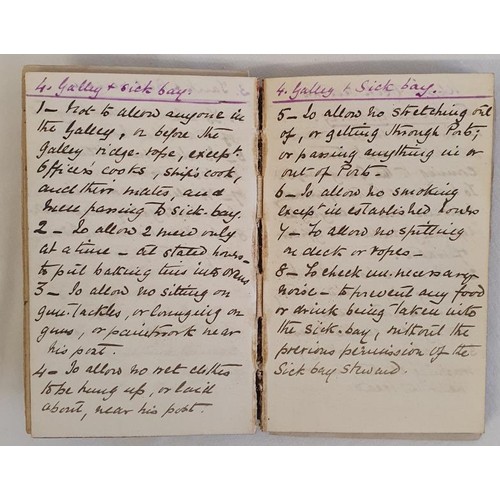 4. Galley & Sick bay.
1 - Not to allow anyone in
the Galley, or before the
Galley ridge-rope, except
Officers cooks, ships cook,
and their mates, and
men passing to sick-bay.
2 - To allow 2 men only
at a time - at stated hours -
to put baking tins into ovens
3 - To allow no sitting on
gun-tackles, or lounging on
guns, or paintwork near
his post.
4 - To allow no wet clothes
to be hung up, or laid
about, near his post.
4. Galley & Sick bay.
5 - To allow no stretching out
of, or getting through Ports;
or passing anything in or
out of Ports -
6 - To allow no smoking
except in established hours
7 - To allow no spitting
on deck or ropes -
8 - To check unnecessary
noise - to prevent any food
or drink being taken into
the sick-bay, without the
previous permission of the
Sick bay Steward.